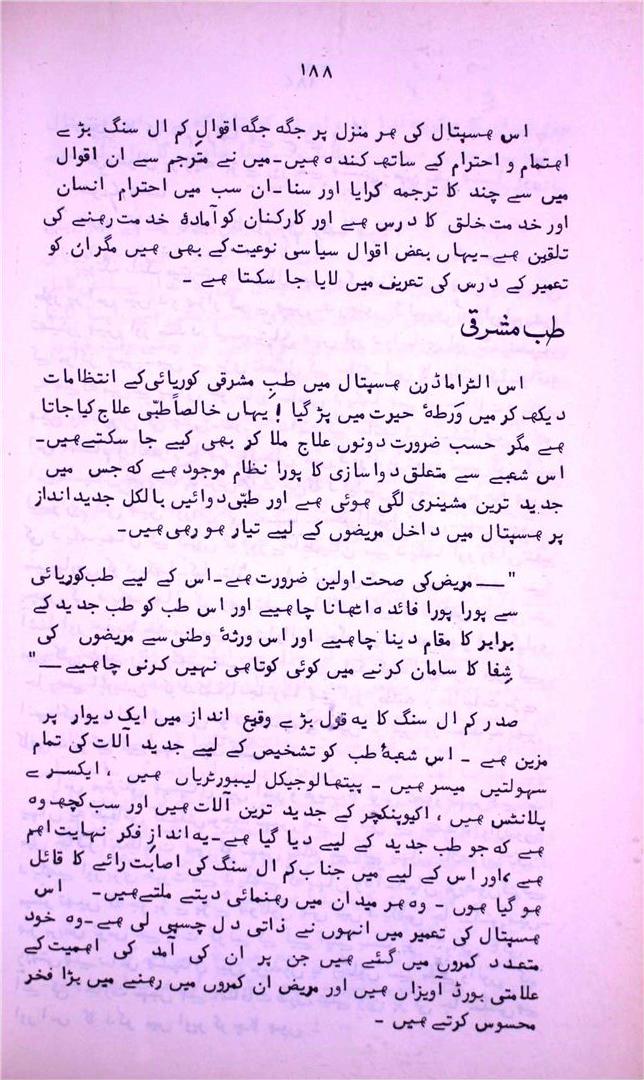 ۱۸۸
اس ھسپتال کی ھر منزل پر جگہ جگہ اقوالِ کم ال سنگ بڑے
اھتمام و احترام کے ساتھ کندہ ھیں۔میں نے مترجم سے ان اقوال
میں سے چند کا ترجمہ کرایا اور سنا۔ان سب میں احترام انسان
اور خدمت خلق کا درس ھے اور کارکنان کو آمادۂ خدمت رھنے کی
تلقین ھے۔یہاں بعض اقوال سیاسی نوعیت کے بھی ھیں مگر ان کو
تعمیر کے درس کی تعریف میں لایا جا سکتا ھے ۔
طب مشرقی
اس الٹرا ماڈرن ھسپتال میں طبِ مشرقی کوریائی کے انتظامات
دیکھ کر میں وَرطۂ حیرت میں پڑ گیا ! یہاں خالصاً طبّی علاج کیا جاتا
ھے مگر حسب ضرورت دونوں علاج ملا کر بھی کیے جا سکتے ھیں۔
اس شعبے سے متعلق دوا سازی کا پورا نظام موجود ھے کہ جس میں
جدید ترین مشینری لگی ھوئی ھے اور طبّی دوائیں بالکل جدید انداز
پر ھسپتال میں داخل مریضوں کے لیے تیار ھو رھی ھیں۔
"ــــ مریض کی صحت اولین ضرورت ھے۔اس کے لیے طب کوریائی
سے پورا پورا فائدہ اٹھانا چاھیے اور اس طب کو طب جدید کے
برابر کا مقام دینا چاھیے اور اس ورثۂ وطنی سے مریضوں کی
شِفا کا سامان کرنے میں کوئی کوتاھی نہیں کرنی چاھیے ــــ"
صدر کم ال سنگ کا یہ قول بڑے وقیع انداز میں ایک دیوار پر
مزین ھے ۔ اس شعبۂ طب کو تشخیص کے لیے جدید آلات کی تمام
سہولتیں میسر ھیں ۔ پیتھالوجیکل لیبورٹریاں ھیں ، ایکسرے
پلانٹس ھیں ، اکیوپنکچر کے جدید ترین آلات ھیں اور سب کچھ وہ
ھے کہ جو طب جدید کے لیے دیا گیا ھے۔یہ اندازِ فکر نہایت اھم
ھے ،اور اس کے لیے میں جناب کم ال سنگ کی اصابت رائے کا قائل
ھو گیا ھوں ۔ وہ ھر میدان میں رھنمائی دیتے ملتے ھیں۔ اس
ھسپتال کی تعمیر میں انہوں نے ذاتی دل چسپی لی ھے۔وہ خود
متعدد کمروں میں گئے ھیں جن پر ان کی آمد کی اھمیت کے
علامتی بورڈ آویزاں ھیں اور مریض ان کمروں میں رھنے میں بڑا فخر
محسوس کرتے ھیں ۔